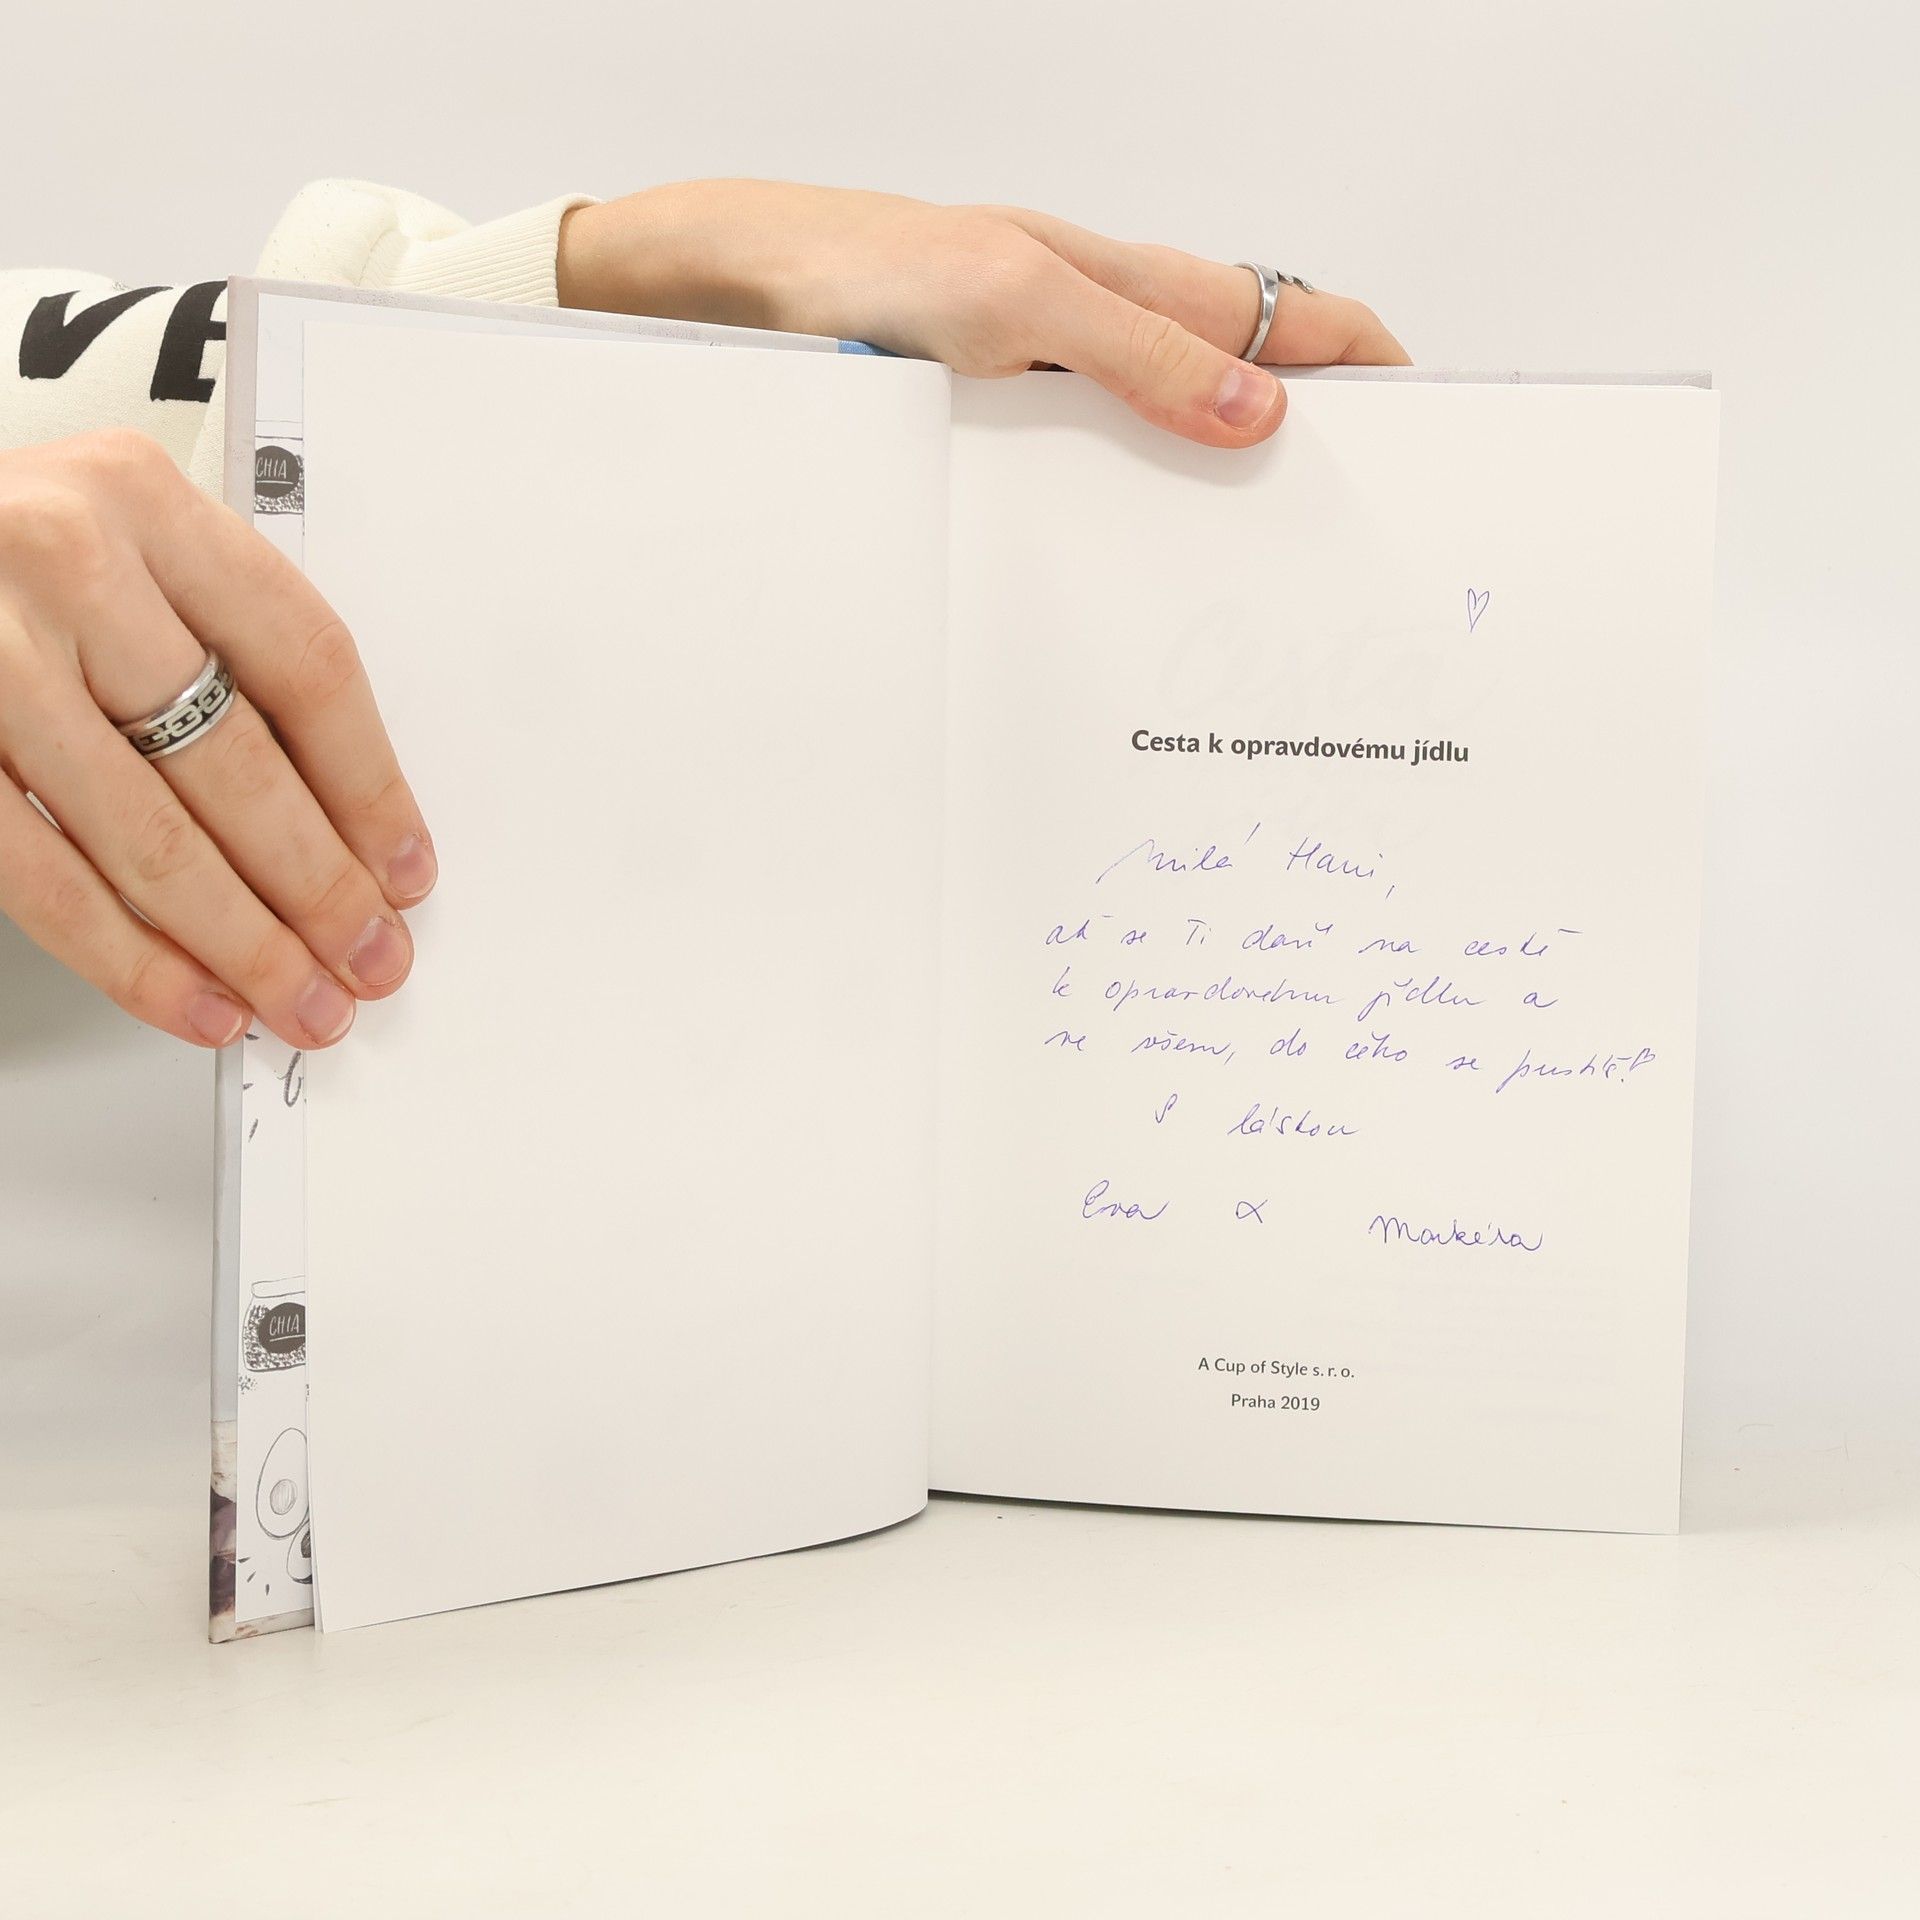 VE
CHIA
CHIA
Cesta k opravdovému jídlu
Milá Hani,
ať se Ti daří na cestě
k opravdovému jídlu a
ve všem, do čeho se pustíš!
S láskou
Eva & Markéta
A Cup of Style s. r. o.
Praha 2019